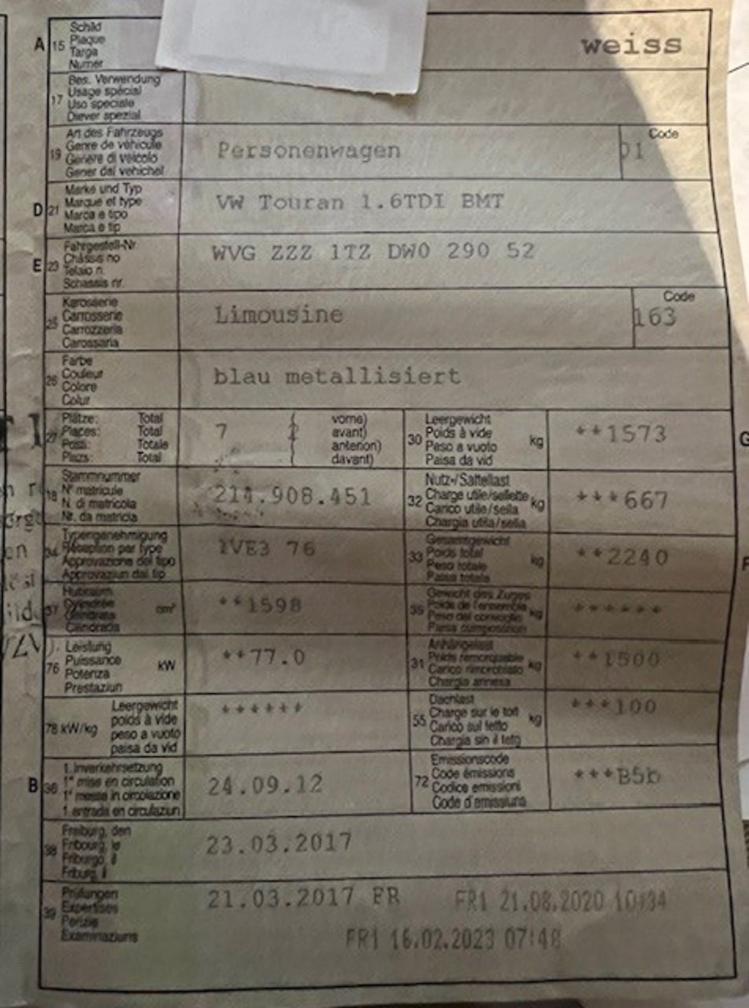 A 15 Schild weiss
Plaque
Targa
Numer
17 Bes. Verwendung
Usage spécial
Uso speciale
Diever spezial
19 Art des Fahrzeugs Personenwagen Code
Genre de véhicule 01
Genere di veicolo
Gener dal vehichel
D 21 Marke und Typ VW Touran 1.6TDI BMT
Marque et type
Marca e tipo
Marca e tip
E 23 Fahrgestell-Nr. WVG ZZZ 1TZ DW0 290 52
Châssis no
Telaio n.
Schassis nr.
25 Karosserie Limousine Code
Carrosserie 163
Carrozzeria
Carossaria
26 Farbe blau metallisiert
Couleur
Colore
Colur
27 Plätze: Total 7 2 vorne)
Places: Total avant)
Posti: Totale anteriori)
Plazs: Total davant)
30 Leergewicht kg **1573
Poids à vide
Peso a vuoto
Paisa da vid
18 Stammnummer 214.908.451
N° matricule
N. di matricola
Nr. da matricla
32 Nutz-/Sattellast kg ***667
Charge utile/sellette
Carico utile/sella
Chargia utila/sella
24 Typengenehmigung 1VE3 76
Réception par type
Approvazione del tipo
Approvaziun dal tip
33 Gesamtgewicht kg **2240
Poids total
Peso totale
Paisa totala
37 Hubraum cm³ **1598
Cylindrée
Cilindrata
Cilindrada
35 Gewicht des Zuges kg ******
Poids de l'ensemble
Peso del convoglio
Paisa cumposiziun
76 Leistung kW **77.0
Puissance
Potenza
Prestaziun
31 Anhängelast kg **1500
Poids remorquable
Carico rimorchiato
Chargia annexa
78 kW/kg Leergewicht ******
poids à vide
peso a vuoto
paisa da vid
55 Dachlast kg ***100
Charge sur le toit
Carico sul tetto
Chargia sin il tetg
B 36 1. Inverkehrsetzung 24.09.12
1re mise en circulation
1a messa in circolazione
1. entrada en circulaziun
72 Emissionscode ***B5b
Code émissions
Codice emissioni
Code d'emissiuns
38 Freiburg, den 23.03.2017
Fribourg, le
Friburgo, il
Friburg, il
39 Prüfungen 21.03.2017 FR FR1 21.08.2020 10:34
Expertises
Perizie
Examinaziuns FR1 16.02.2023 07:48